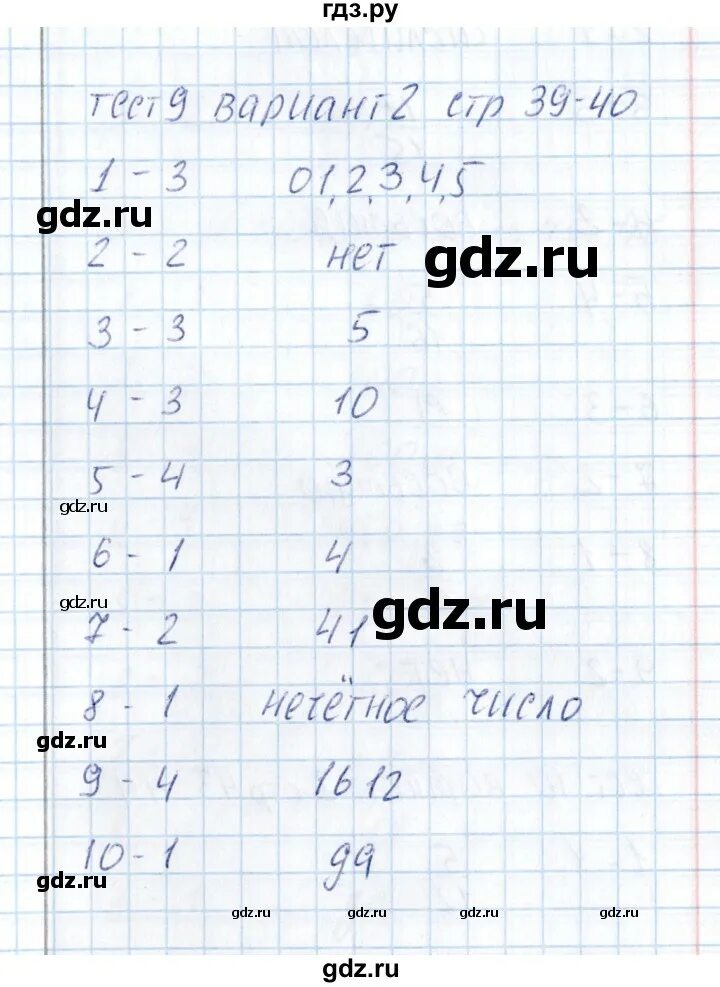 гдз.ру
тест 9 вариант 2 стр 39-40
1 - 3 0 1, 2, 3, 4, 5
gdz.ru
2 - 2 нет
gdz.ru
3 - 3 5
4 - 3 10
5 - 4 3
gdz.ru
6 - 1 4
gdz.ru
gdz.ru
7 - 2 41
8 - 1 нечётное число
gdz.ru
9 - 4 16 12
10 - 1 99
gdz.ru
gdz.ru gdz.ru gdz.ru gdz.ru
gdz.ru